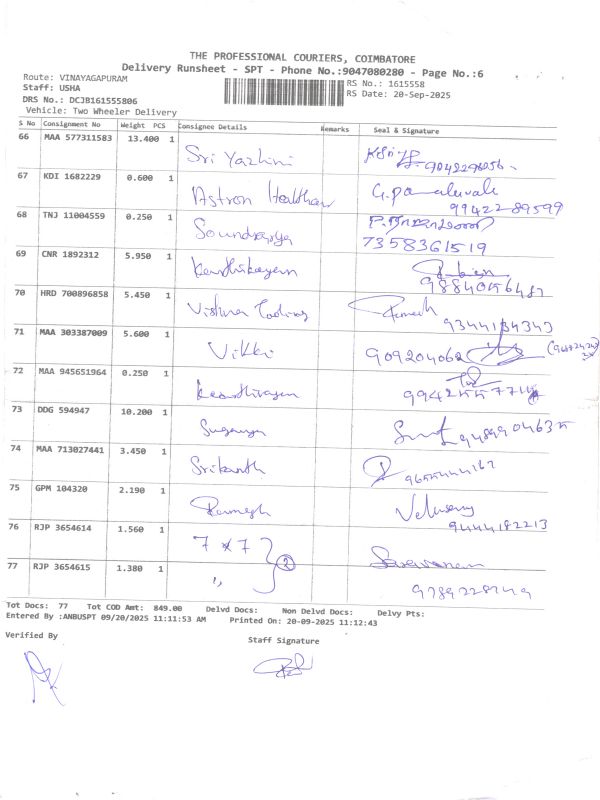 THE PROFESSIONAL COURIERS, COIMBATORE
Delivery Runsheet - SPT - Phone No.:9047080280 - Page No.:6
Route: VINAYAGAPURAM
RS No.: 1615558
Staff: USHA
RS Date: 20-Sep-2025
DRS No.: DCJB161555806
Vehicle: Two Wheeler Delivery
S No Consignment No Weight PCS Consignee Details Remarks Seal & Signature
66 MAA 577311583 13.400 1 Sri Yazhini
67 KDI 1682229 0.600 1 Astron
9942289599
68 TNJ 11004559 0.250 1 Soundarya
7358361519
69 CNR 1892312 5.950 1 Karthikayen
9884056487
70 HRD 700896858 5.450 1 Ramesh
9344134343
71 MAA 303387009 5.600 1 Vikki 909204062
72 MAA 945651964 0.250 1
73 DDG 594947 10.200 1 Suganya
74 MAA 713027441 3.450 1 Srikanth
75 GPM 104320 2.190 1 Ramesh
9444182213
76 RJP 3654614 1.560 1 7 * 7 2 Saravanan
77 RJP 3654615 1.380 1 "
9789228749
Tot Docs: 77 Tot COD Amt: 849.00 Delvd Docs: Non Delvd Docs: Delvy Pts:
Entered By :ANBUSPT 09/20/2025 11:11:53 AM Printed On: 20-09-2025 11:12:43
Verified By
Staff Signature